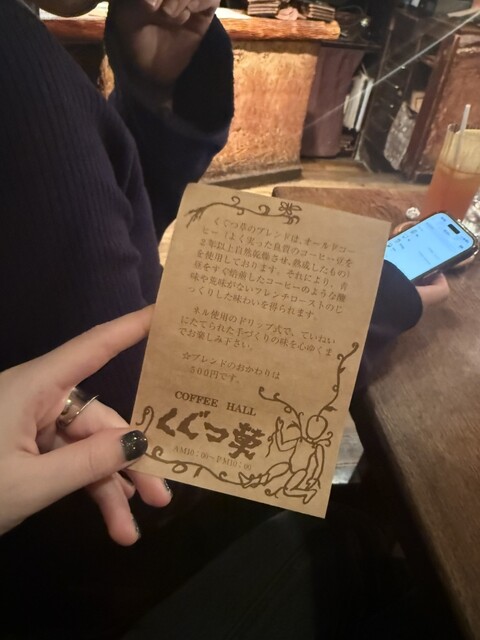 くぐつ草のブレンドは、オールドコー
ヒー（よく実った良質のコーヒー豆を
2年以上自然乾燥させ、熟成したもの）
を使用しております。それにより、青
豆をすぐ焙煎したコーヒーのような酸
味や臭味がないフレンチローストのじ
っくりした味わいを得られます。
ネル使用のドリップ式で、ていねい
にたてられた手づくりの味を心ゆくま
でお楽しみ下さい。
☆ブレンドのおかわりは
500円です。
COFFEE HALL
くぐつ草
AM10:00～PM10:00